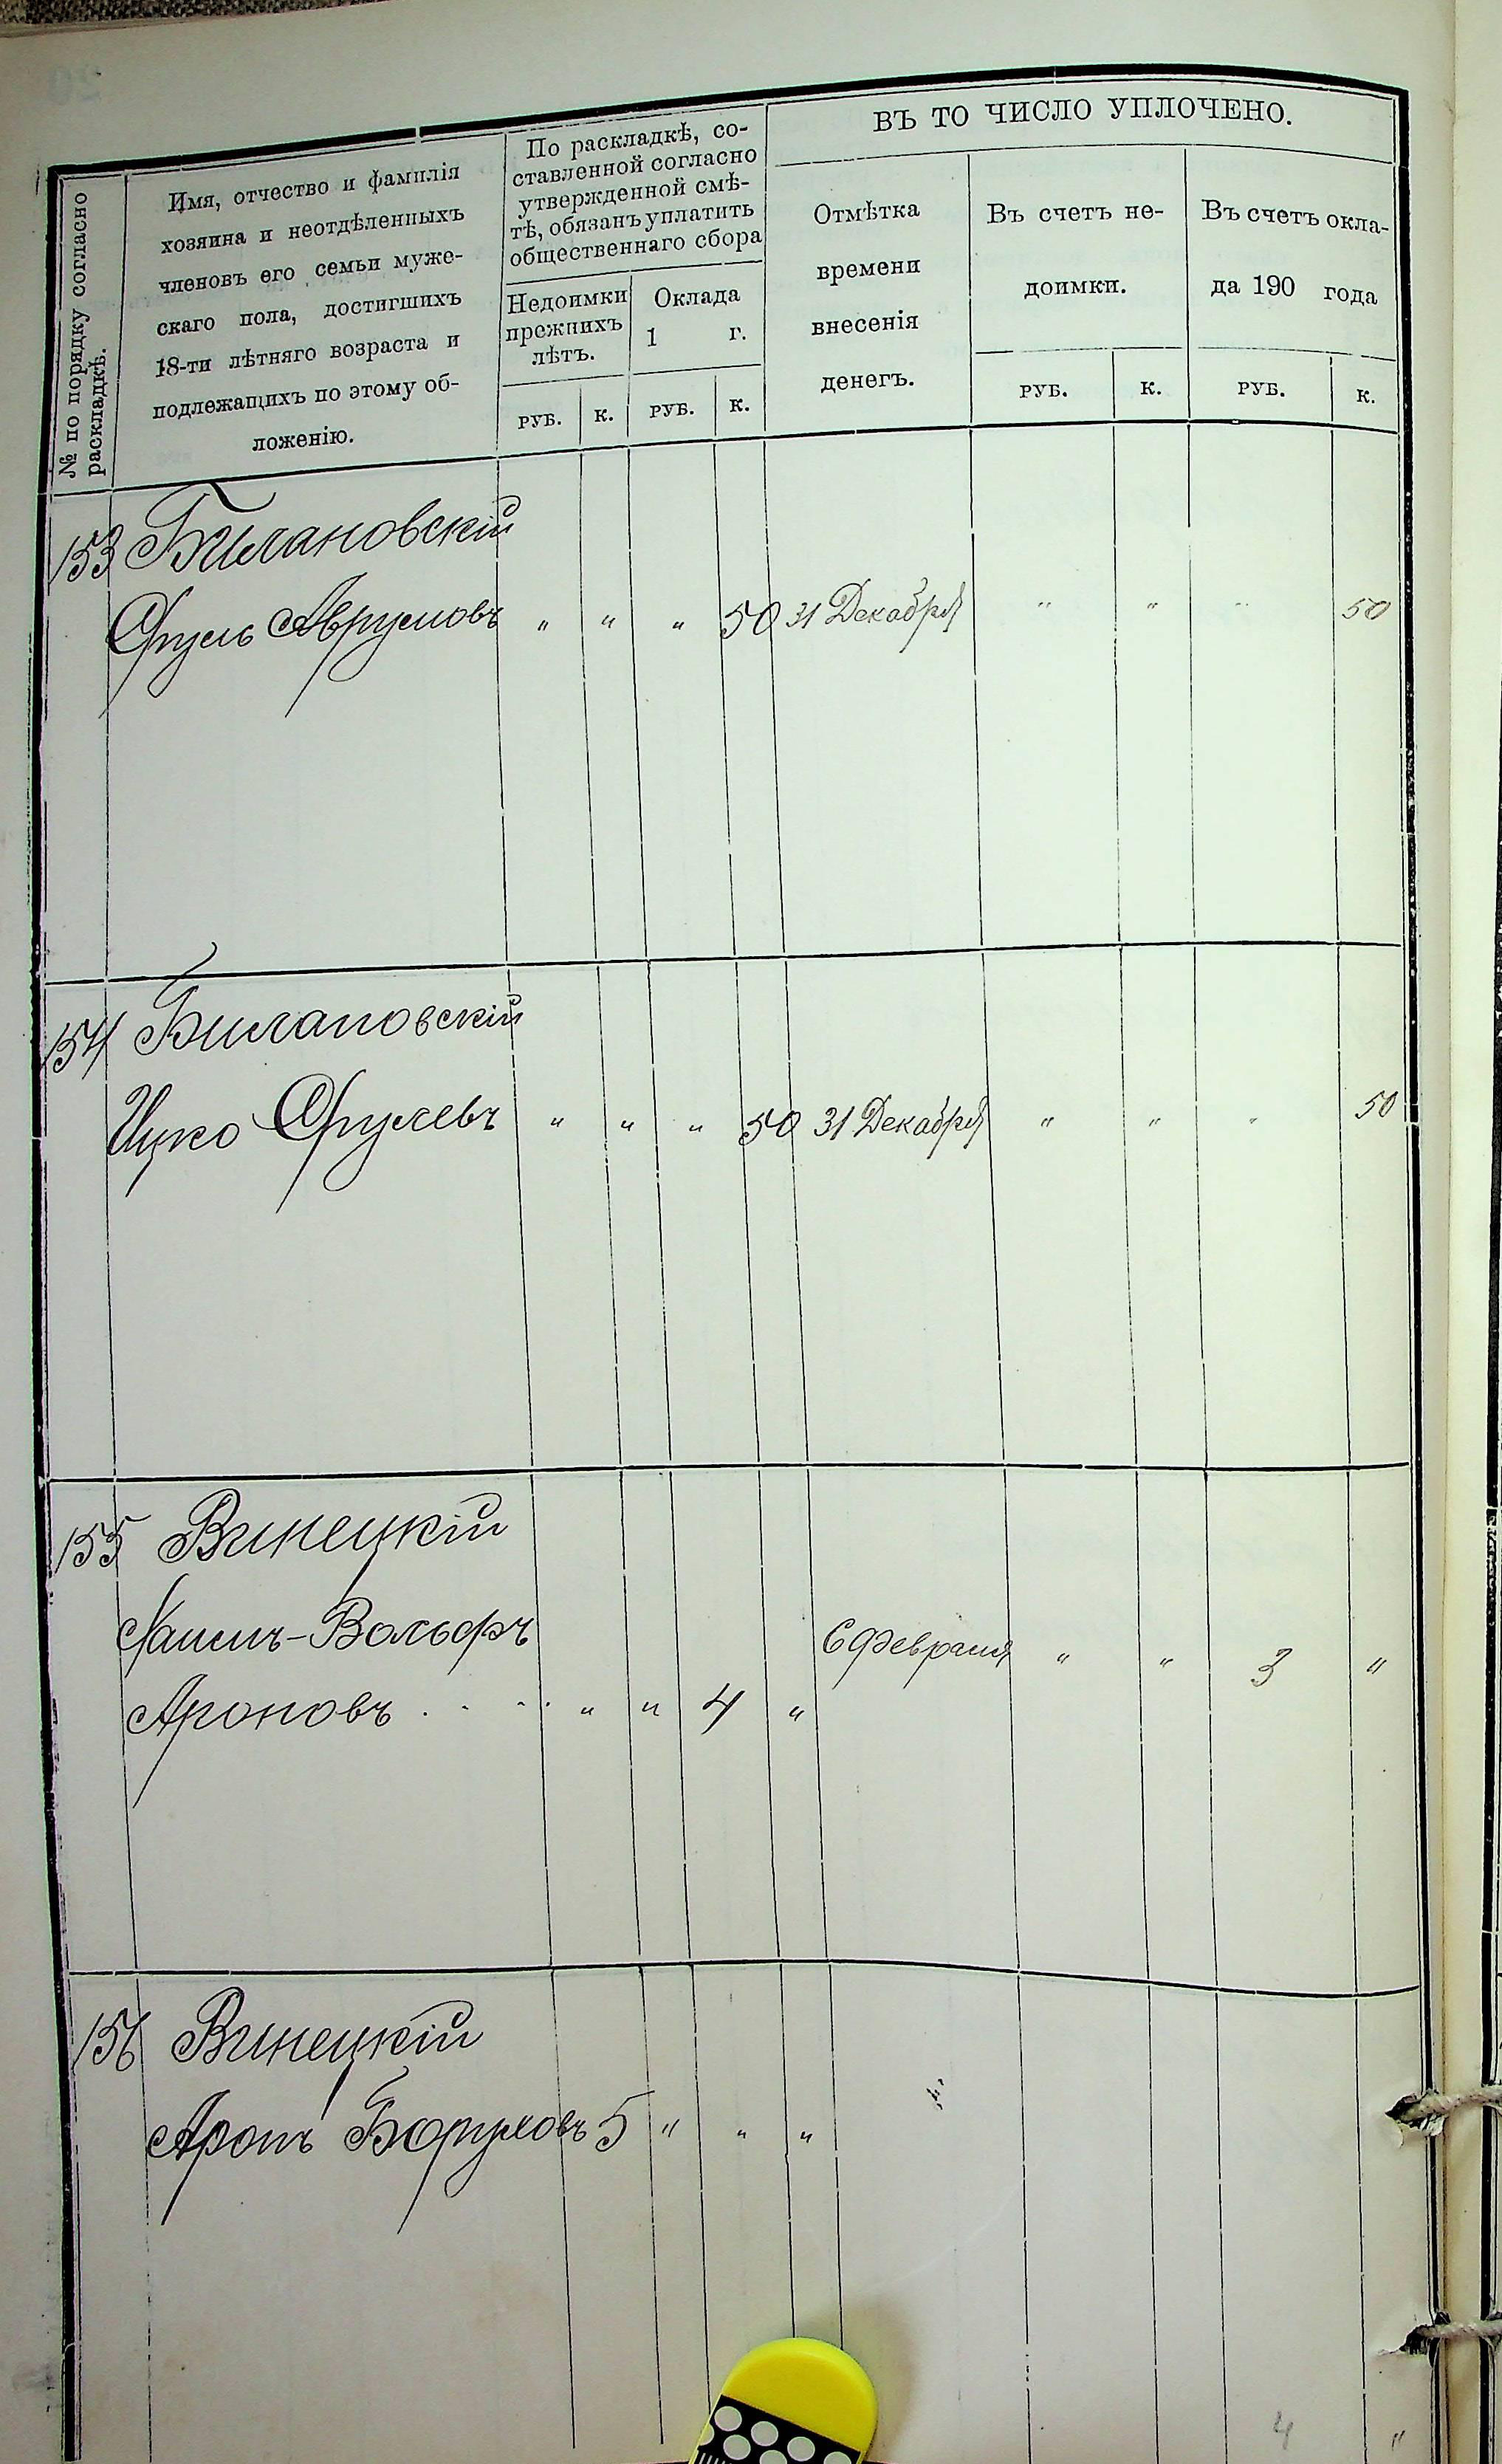 ВЪ ТО ЧИСЛО УПЛОЧЕНО.
№ по порядку согласно
раскладкѣ.
Имя, отчество и фамилія
хозяина и неотдѣленныхъ
членовъ его семьи муже-
скаго пола, достигшихъ
18-ти лѣтняго возраста и
подлежащихъ по этому об-
ложенію.
По раскладкѣ, со-
ставленной согласно
утвержденной смѣ-
тѣ, обязанъ уплатить
общественнаго сбора
Недоимки
прежнихъ
лѣтъ.
Оклада
1 г.
РУБ. К. РУБ. К.
Отмѣтка
времени
внесенія
денегъ.
Въ счетъ не-
доимки.
РУБ. К.
Въ счетъ окла-
да 190 года
РУБ. К.
153 Билановскій
Сруль Аврумовъ " " " 50 31 Декабря " " " 50
154 Билановскій
Ицко Срулевъ " " " 50 31 Декабря " " " 50
155 Винецкій
Хаимъ-Вольфъ 6 Февраля " " 3 "
Ароновъ . . . . " " 4 "
156 Винецкій
Аронъ Боруховъ 5 " " "
4 "